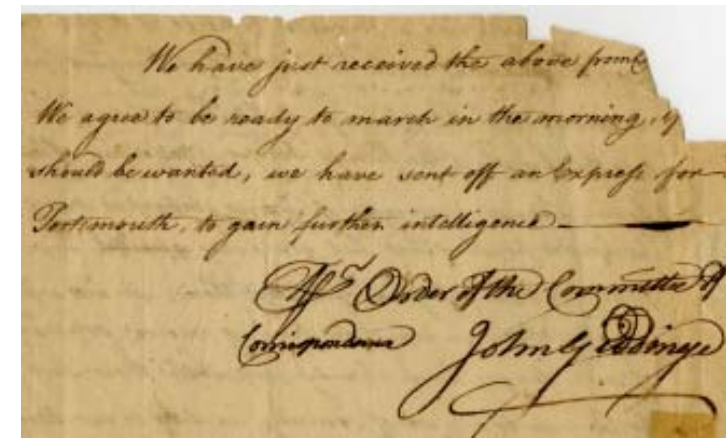 We have just received the above from
We agree to be ready to march in the morning, if
should be wanted, we have sent off an Express for
Portsmouth, to gain further intelligence
Pr Order of the Committee of
Correspondence John Giddinge